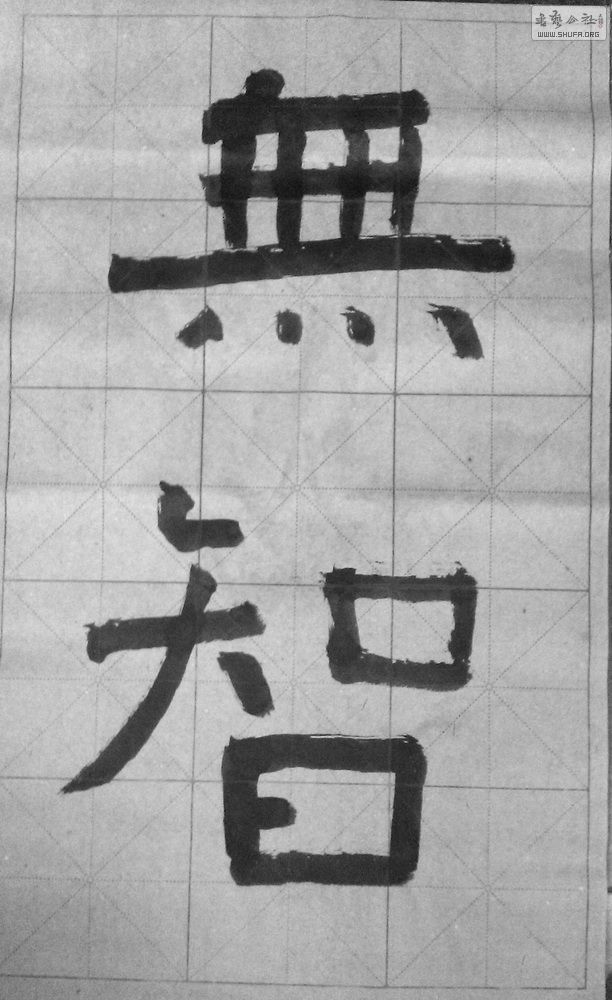 書藝公社
WWW.SHUFA.ORG
無
智